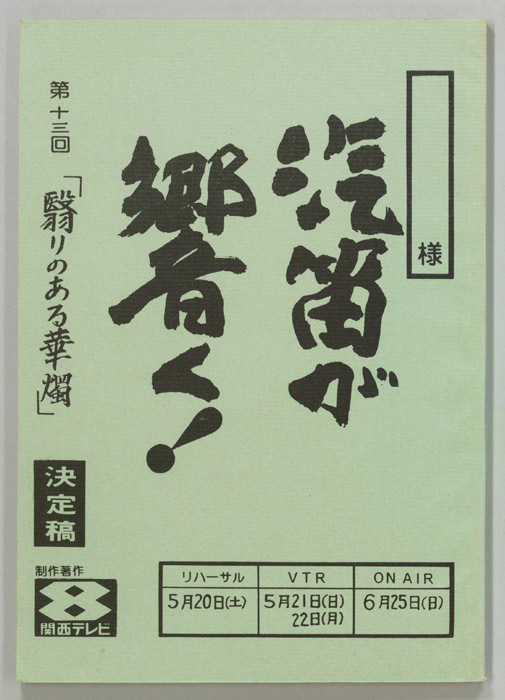 様
汽笛が
響く!
第十三回
「翳りのある華燭」
決定稿
制作著作
8
関西テレビ
リハーサル VTR ON AIR
5月20日(土) 5月21日(日) 6月25日(日)
22日(月)